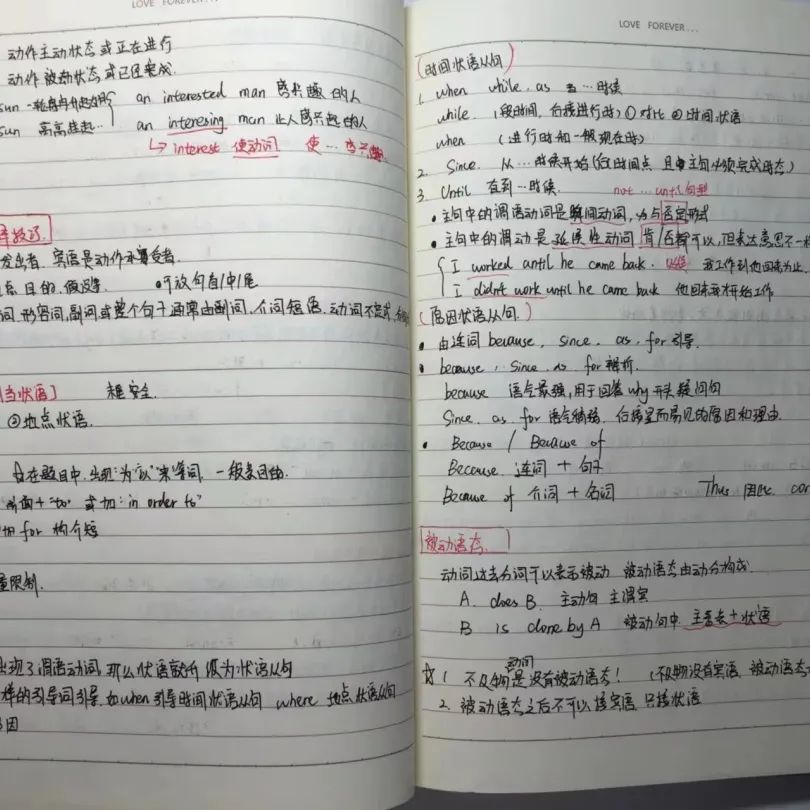 LOVE FOREVER...
动作主动状态或正在进行
动作被动状态或已经完成.
sun
an interested man 感兴趣的人
sun 高高挂起…
an interesing man 让人感兴趣的人
↳ interest 使动词 使…感兴趣
技巧
发出者. 宾语是动作承受者.
目的. 假设等. •可放句首/中/尾
词. 形容词, 副词或整个句子 通常由副词. 介词短语. 动词不定式,
当状语] 安全.
②地点状语.
在题目中. 出现"为""以""来"等词. 一般表目的.
"to" 或加: in order to"
加 for 构介短
限制.
出现了谓语动词, 那么状语就升级为状语从句
样的引导词引导. 如when引导时间状语从句 where 地点状语从句
因
LOVE FOREVER...
(时间状语从句)
1. when while. as 当…时候
while. (段时间, 后接进行时) ①对比 ②时间状语
when (进行时和一般现在时)
2. Since. 从…时候开始(后时间点 且主句必须完成时态)
3. Until 直到…时候. not ... until句型
• 主句中的谓语动词是瞬间动词, 为与否定形式
• 主句中的谓动是延续性动词 肯/否都可以, 但表达意思不一样
I worked until he came back. 我工作到他回来为止.
I didn't work until he came back 他回来我才开始工作
(原因状语从句.)
• 由连词 because, since, as, for 引导.
• because, Since. as for辨析.
because 语气最强, 用于回答why开头疑问句
Since. as. for语气稍弱. 后接显而易见的原因和理由.
• Because / Because of
Because 连词 + 句子
Because of 介词 + 名词 Thus 因此
被动语态.
动词过去分词可以表示被动 被动语态由动分构成.
A. does B. 主动句 主谓宾
B is done by A 被动句中. 主 + 状语
☆ 1. 不及物动词是没有被动语态! (不及物没有宾语, 被动语态
2. 被动语态之后不可以接宾语, 只接状语